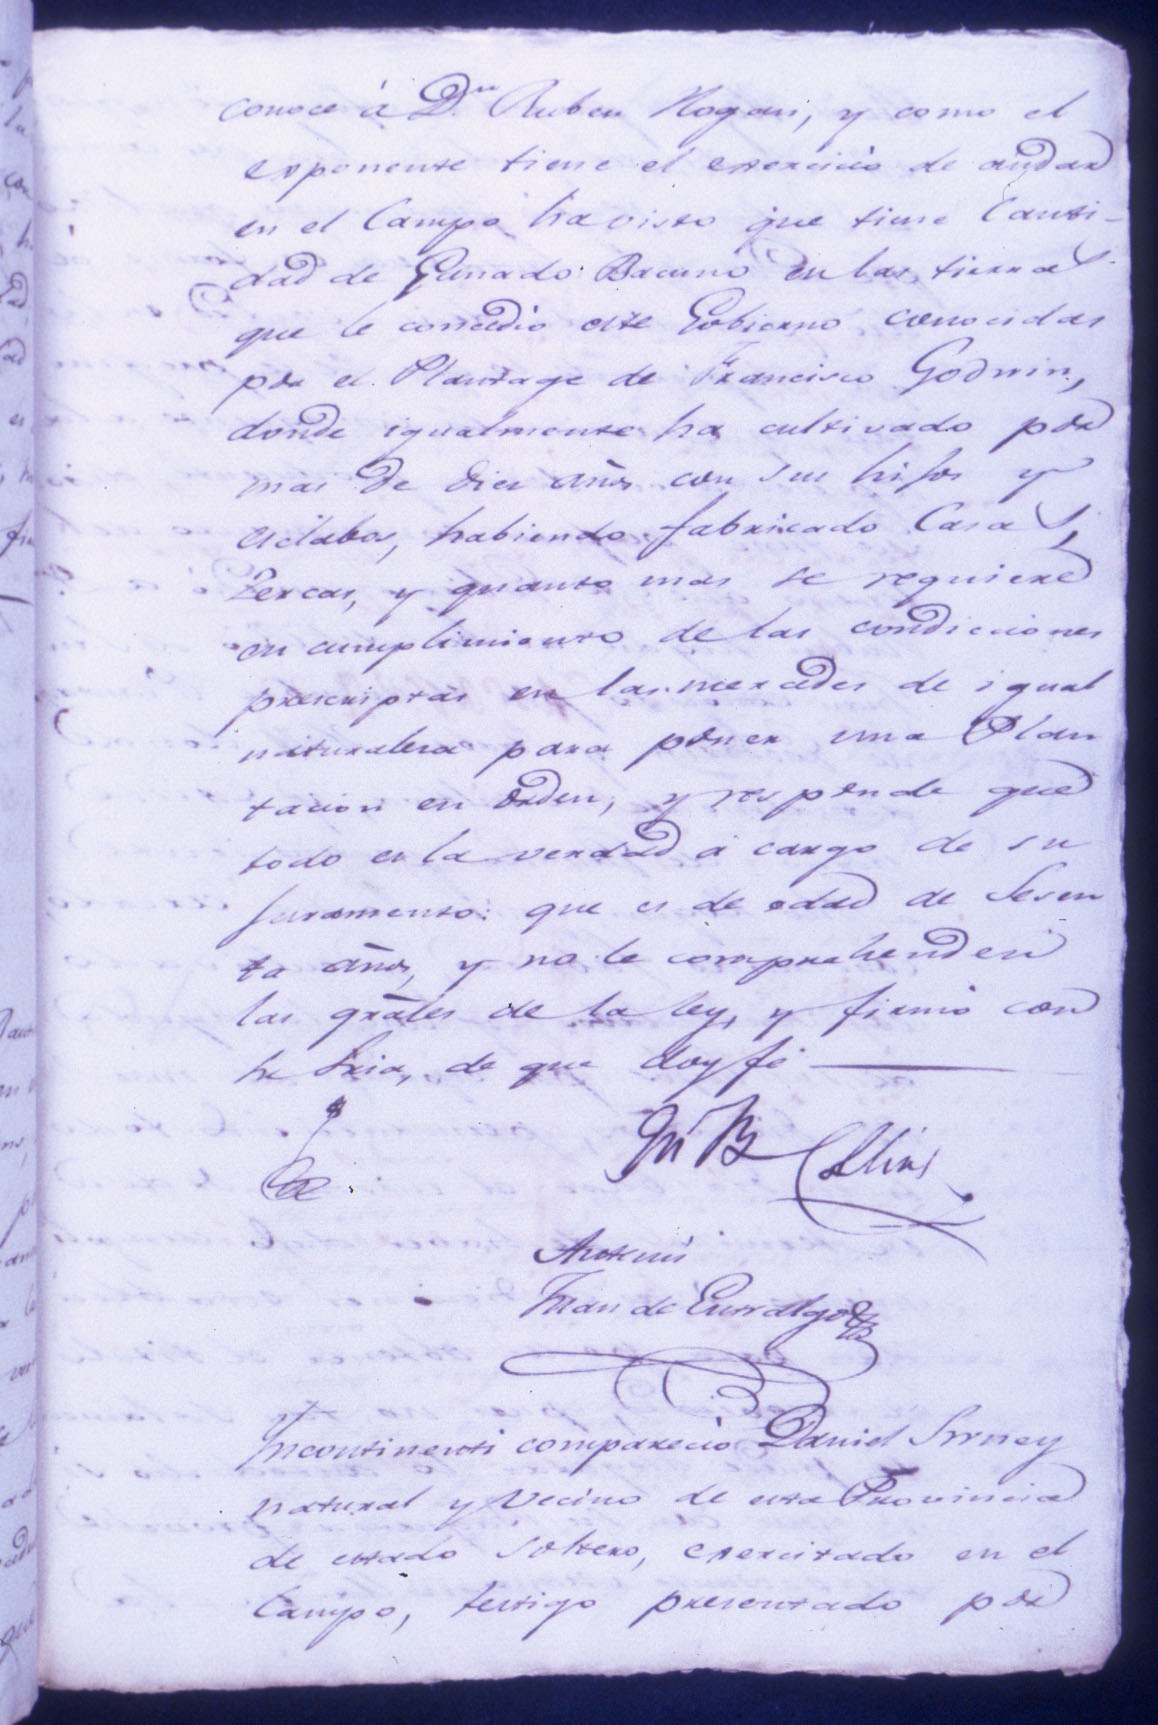 conoce á Dn Ruben Hogan, y como el
exponente tiene el exercicio de andar
en el Campo ha visto que tiene Canti-
dad de Ganado Bacuno en las tierras
que le concedio este Gobierno conocidas
por el Plantage de Francisco Godwin,
donde igualmente ha cultivado por
mas de diez años con sus hijos y
esclabos, habiendo fabricado Casas,
Zercas, y quanto mas se requiere
en cumplimiento de las condicciones
prescriptas en las mercedes de igual
naturaleza para poner una Plan
tacion en orden, y responde que
todo es la verdad á cargo de su
juramento: que es de edad de Sesen
ta años, y no le comprehenden
las grãles de la ley, y firmó con
su Sria, de que doy fé
Jn B Collins
Antemi
Juan de Entralgo
Incontinenti comparecio Daniel
natural y Vecino de esta Provincia
de estado Soltero, exercitado en el
Campo, testigo presentado por